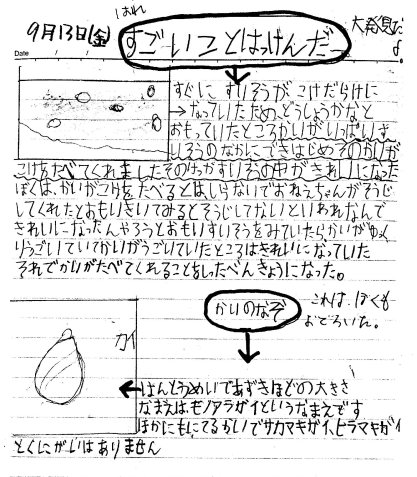 はれ
9月13日(金) すごいことはっけんだー 大発見だよ
Date
すぐにすいそうが、こけだらけに
→なっていたため、どうしょうかなと
おもっていたところかいがいっぱいす
いそうのなかにできはじめそのかいが
こけをたべてくれましたそのけっかすいそうの中がきれいになった
ぼくは、かいがこけをたべるとはしらないでおねぇちゃんがそうじ
してくれたとおもいきいてみるとそうじしてないといわれなんで
きれいになったんやろうとおもいすいそうをみていたらかいがゆっく
りうごいていてかいがうごいていたところはきれいになっていた
それでかいがたべてくれることをしったべんきょうになった。
かいのなぞ
これは、ぼくも
おどろいた。
カイ
←はんとうめいであずきほどの大きさ
なまえは、モノアラガイというなまえです
ほかにもにてるかいでサカマキガイ、ヒラマキガイ
とくにがいはありません